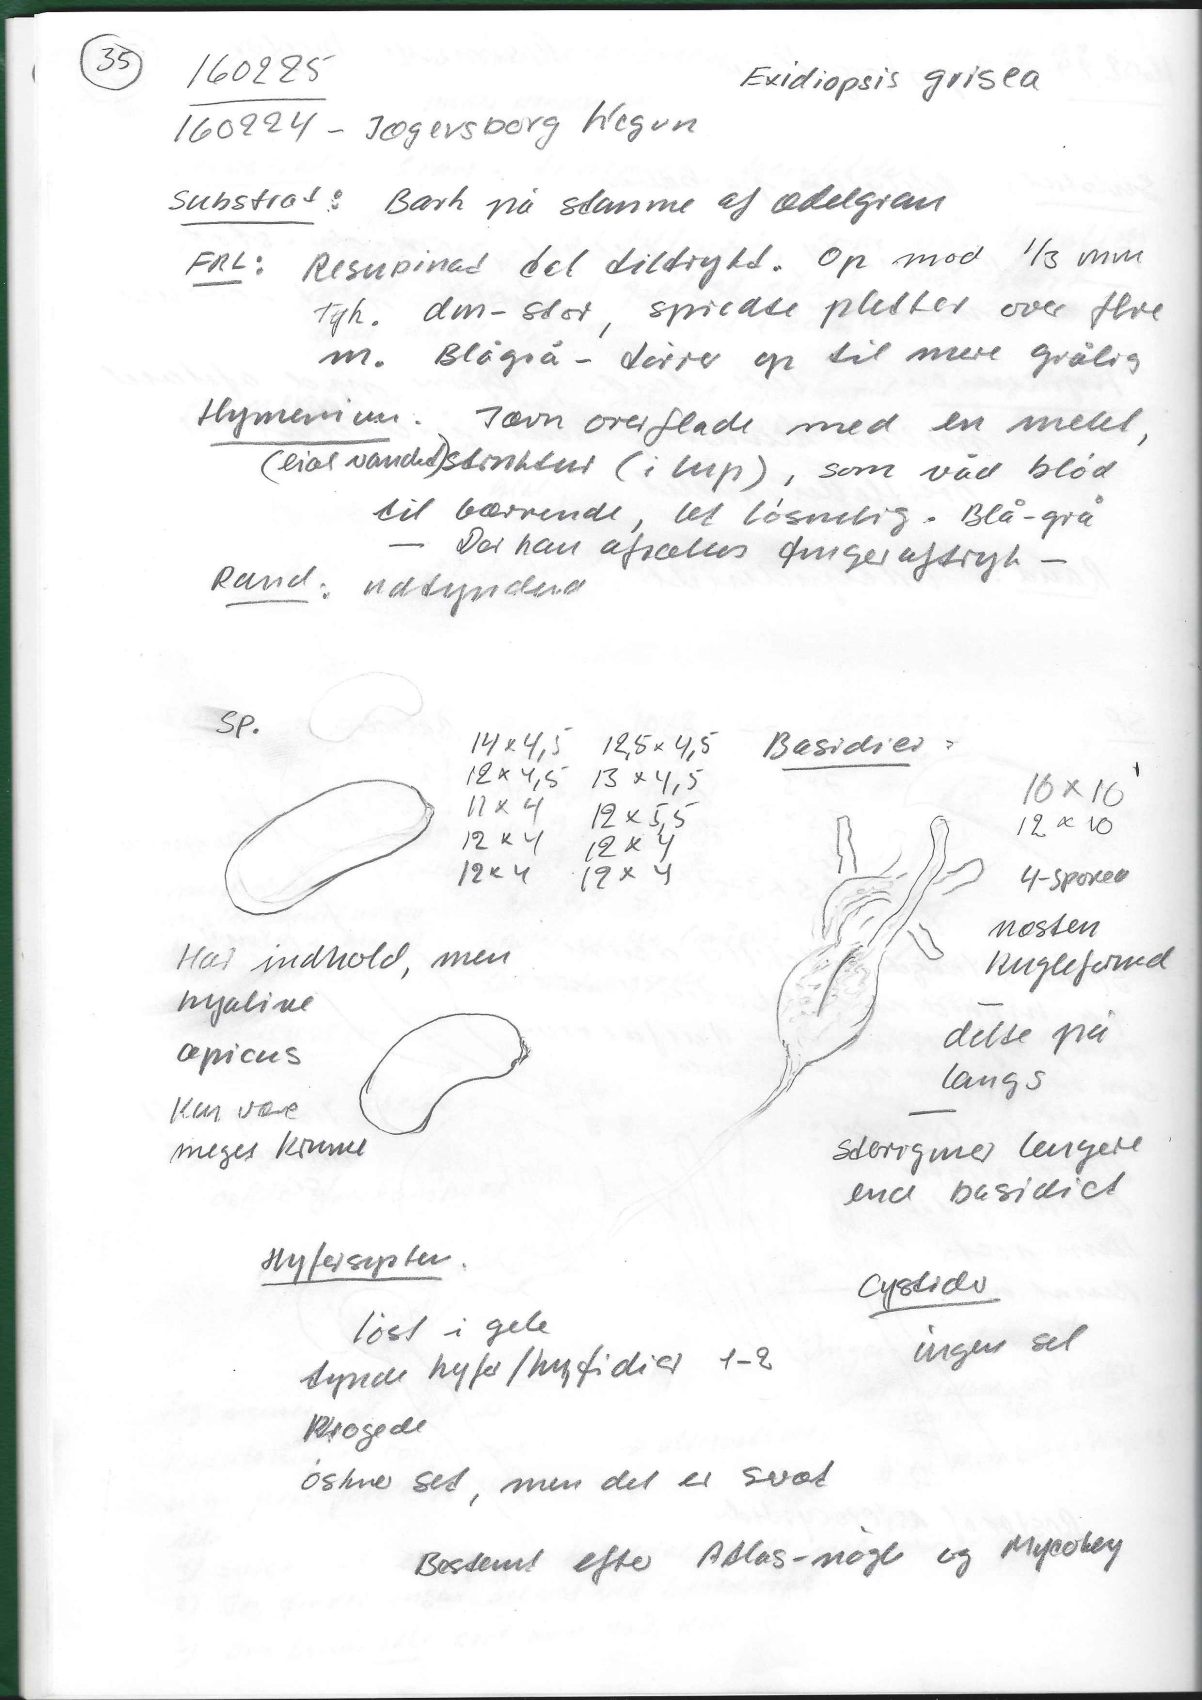 35
160225
Exidiopsis grisea
160224 - Jægersborg Hegn
Substrat: Bark på stamme af ædelgran
FRL: Resupinat tæt tiltrykt. Op mod 1/3 mm
tyk. dm-stor, spredte pletter over flere
m. Blågrå - tørrer op til mere grålig
Hymenium. Jævn overflade med en melet,
struktur (i lup), som våd blød
til bævrende, let løsnelig. Blå-grå
- Der kan afsættes fingeraftryk -
Rand: udtyndend
SP.
14 x 4,5 12,5 x 4,5
12 x 4,5 13 x 4,5
11 x 4 12 x 5,5
12 x 4 12 x 4
12 x 4 12 x 4
Har indhold, men
hyaline
apicus
Kan være
meget krumme
Basidier:
10 x 10
12 x 10
4-sporea
næsten
kugleformed
-
delte på
langs
-
sterigmer længere
end basidiet
Hyfesystem.
løst i gele
tynde hyfer/hyfidier 1-2
Krogede
øskner set, men det er svært
Cystider
ingen set
Bestemt efter Atlas-nøgle og Mycokey